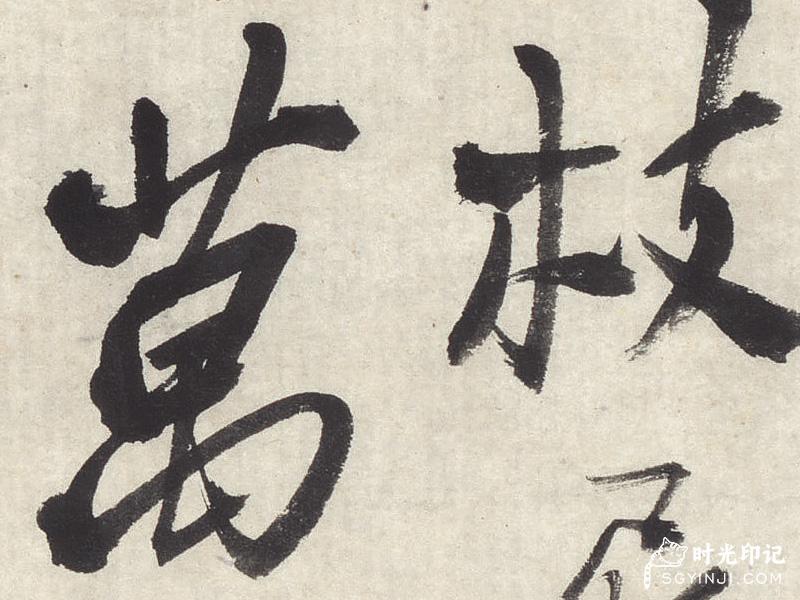 枝
萬
时光印记
SGYINJI.COM